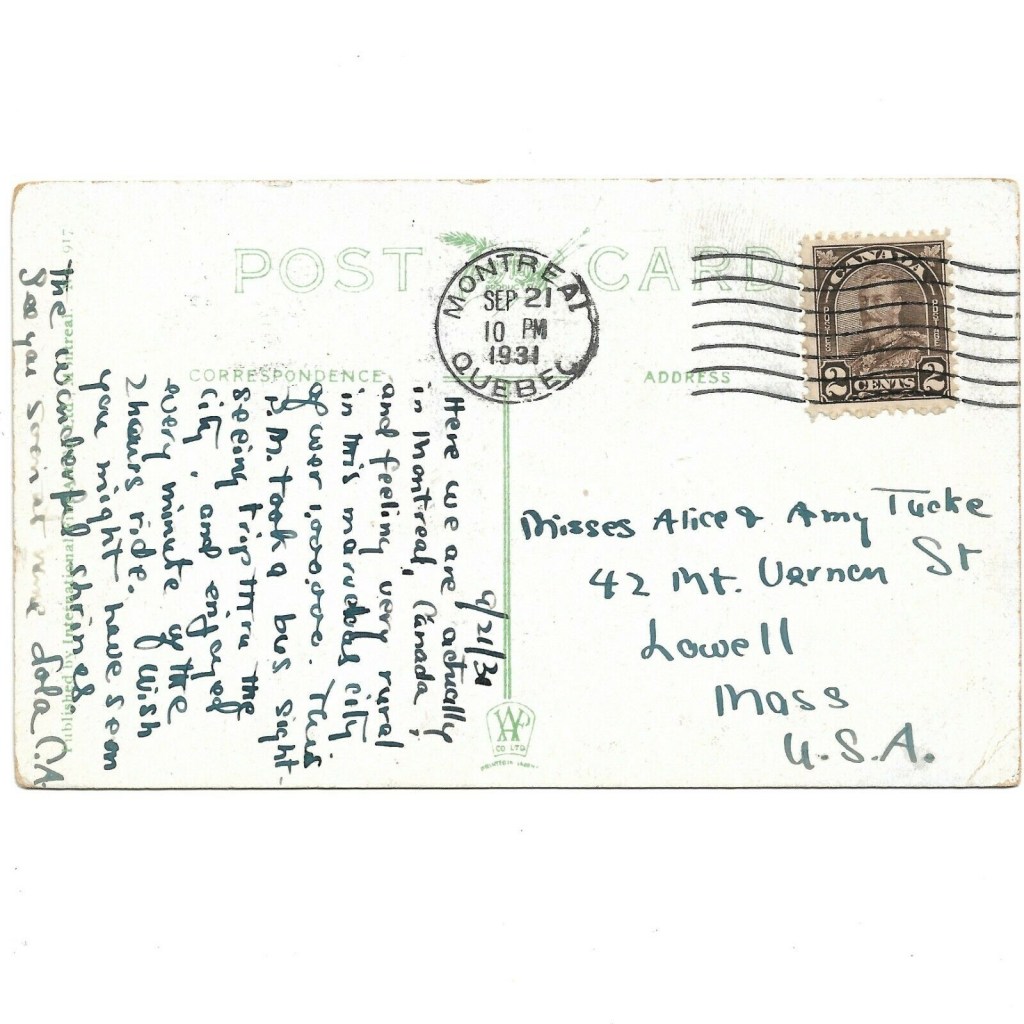 POST CARD
MONTREAL
SEP 21
10 PM
1931
QUEBEC
CANADA
POSTES POSTAGE
2 CENTS 2
CORRESPONDENCE
ADDRESS
9/21/31
Here we are actually
in Montreal, Canada,
and feeling very rural
in this marvelous city
of over 1,000,000. This
P.M. took a bus sight-
seeing trip thru the
city, and enjoyed
every minute of the
2 hours ride. Wish
you might have seen
the wonderful shrines.
See you soon at
Lola C. A.
Misses Alice & Amy Tucke
42 Mt. Vernon St
Lowell
Mass
U.S.A.
Published by International
Montreal.
917
CO LTD